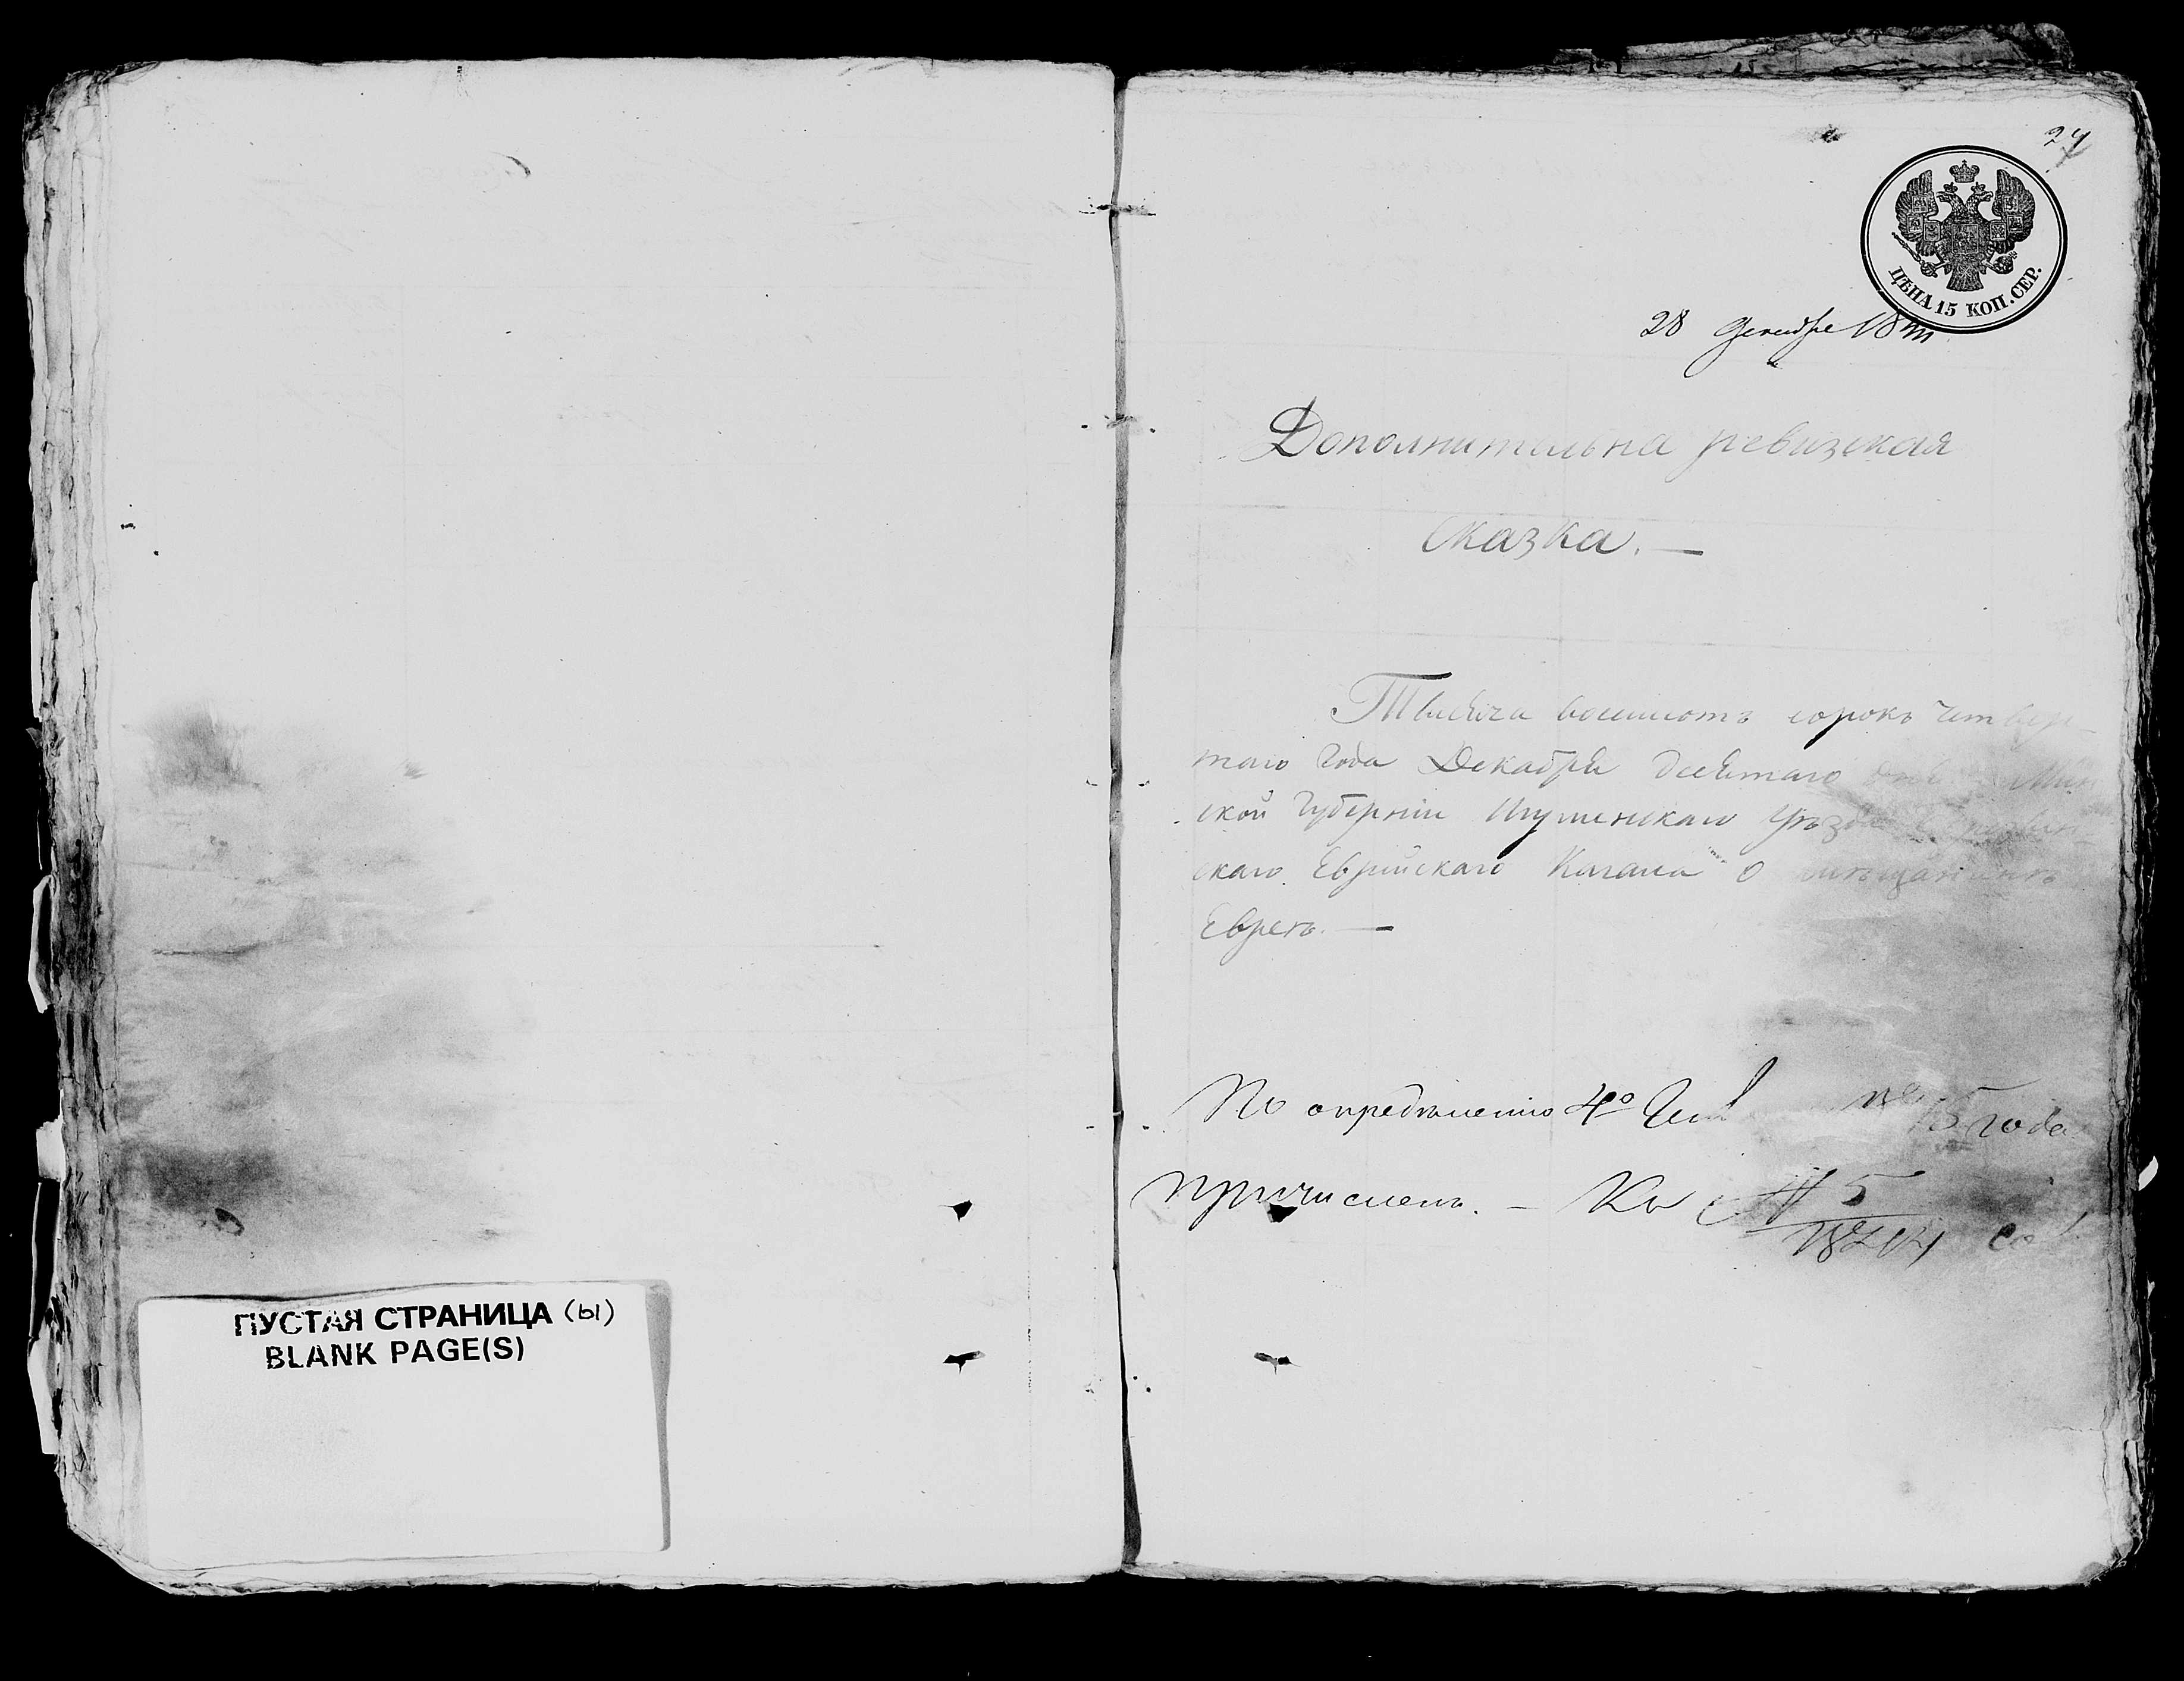 ПУСТАЯ СТРАНИЦА (ы)
BLANK PAGE(S)
24
ЦѢНА 15 КОП. СЕР.
28 Декабря
Дополнительна ревизская
сказка. —
Тысяча восемьсотъ сорокъ четвер-
таго года Декабря десятаго дня Мин
ской Губерніи Игуменскаго Уѣзда
скаго Еврейскаго Кагала О мѣщанинѣ
Евреѣ. —
По опредѣленію 4º года
причисленъ. — Къ № 5